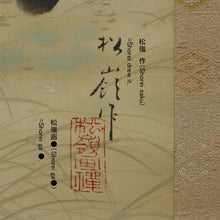 松嶺 作 (Shorei saku)
=Shorei drew it.
松嶺作
松嶺画●(Shorei ga●)
=Shorei ga ●